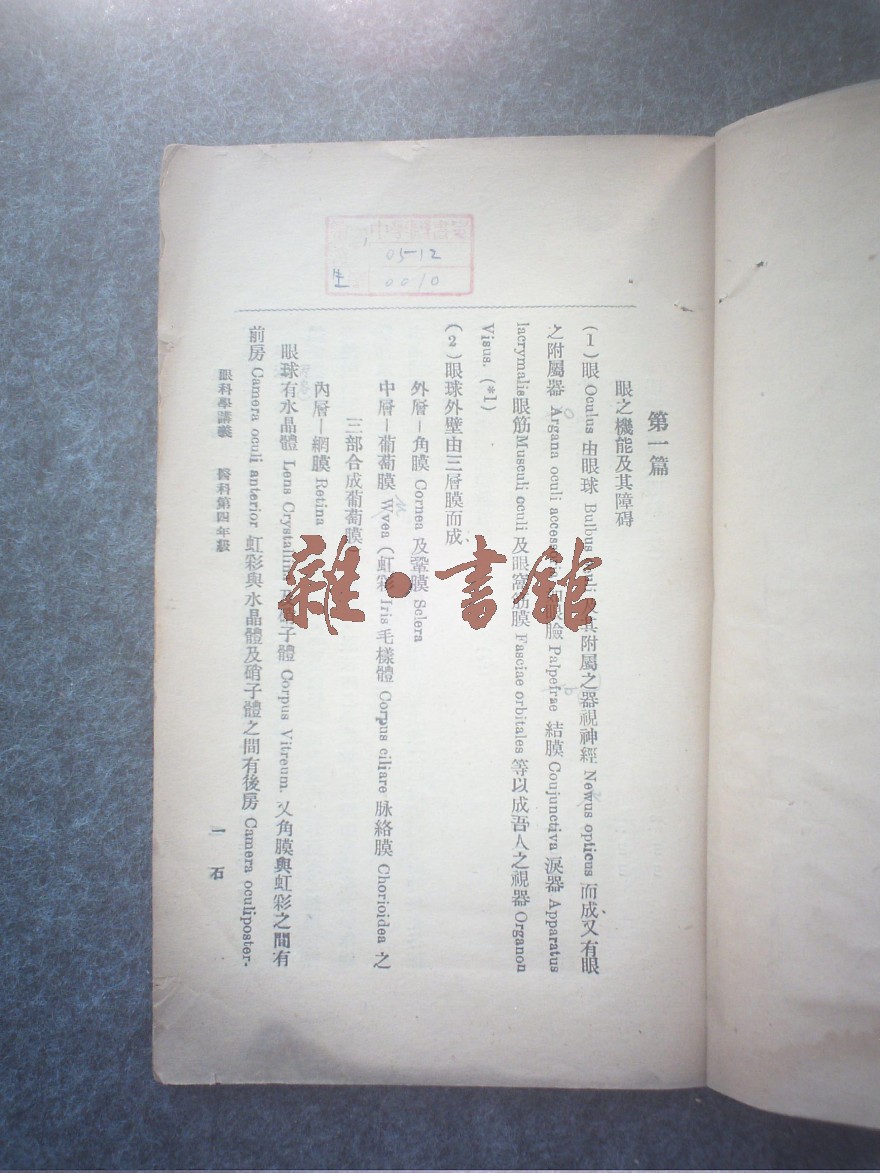 第一篇
眼之機能及其障碍
(1)眼 Oculus 由眼球 Bulbus 其附屬之器視神經 Newus opticus 而成、又有眼
之附屬器 Argana oculi 眼臉 Palpefrae 結膜 Coujunctiva 淚器 Apparatus
lacrymalis 眼筋 Musculi oculi 及眼窩筋膜 Fasciae orbitales 等以成吾人之視器 Organon
Visus. (*1)
(2)眼球外壁由三層膜而成、
外層—角膜 Cornea 及鞏膜 Sclera
中層—葡萄膜 Wvea (虹彩 Iris 毛樣體 Corpus ciliare 脉絡膜 Chorioidea 之
三部合成葡萄膜
內層—網膜 Retina
眼球有水晶體 Lens 硝子體 Corpus Vitreum. 又角膜與虹彩之間有
前房 Camera oculi anterior 虹彩與水晶體及硝子體之間有後房 Camera oculiposter-
眼科學講義 醫科第四年級 一 石
05-12
生 0010
雜·書館